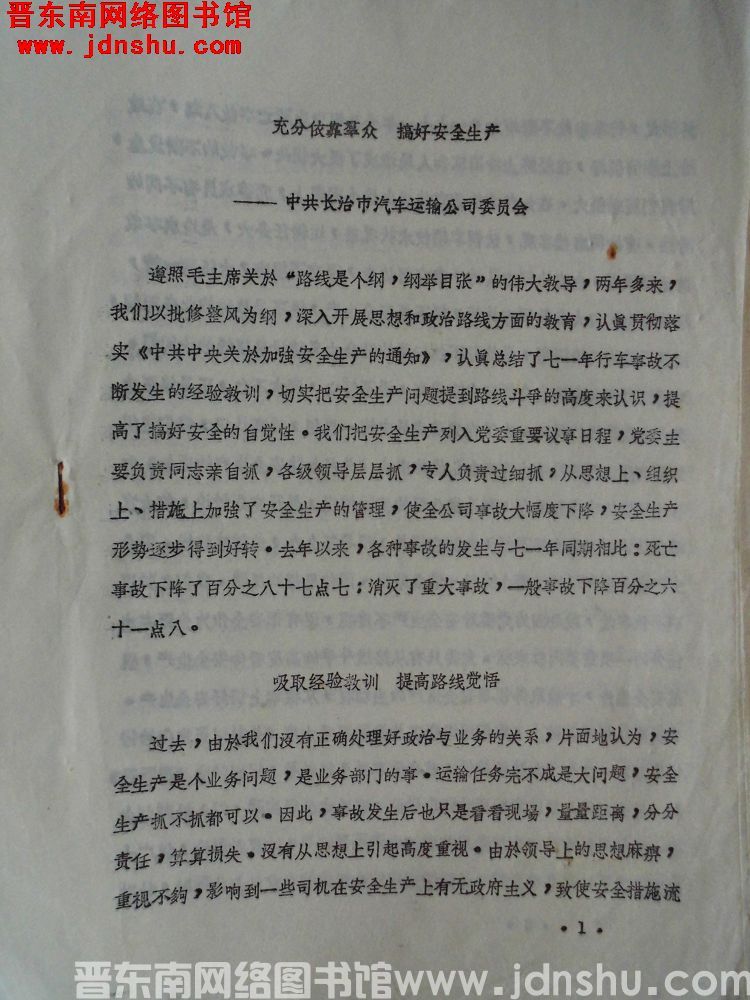 晋东南网络图书馆
www.jdnshu.com
充分依靠羣众　搞好安全生产
——中共长治市汽车运输公司委员会
遵照毛主席关於“路线是个纲，纲举目张”的伟大教导，两年多来，
我们以批修整风为纲，深入开展思想和政治路线方面的教育，认真贯彻落
实《中共中央关於加強安全生产的通知》，认真总结了七一年行车事故不
断发生的经验教训，切实把安全生产问题提到路线斗爭的高度来认识，提
高了搞好安全的自觉性。我们把安全生产列入党委重要议事日程，党委主
要负责同志亲自抓，各级领导层层抓，专人负责过细抓，从思想上、组织
上、措施上加強了安全生产的管理，使全公司事故大幅度下降，安全生产
形势逐步得到好转。去年以来，各种事故的发生与七一年同期相比：死亡
事故下降了百分之八十七点七；消灭了重大事故，一般事故下降百分之六
十一点八。
吸取经验教训　提高路线觉悟
过去，由於我们沒有正确处理好政治与业务的关系，片面地认为，安
全生产是个业务问题，是业务部门的事。运输任务完不成是大问题，安全
生产抓不抓都可以。因此，事故发生后也只是看看现場，量量距离，分分
责任，算算损失。沒有从思想上引起高度重视。由於领导上的思想麻痹，
重视不夠，影响到一些司机在安全生产上有无政府主义，致使安全措施流
·1·
晋东南网络图书馆www.jdnshu.com